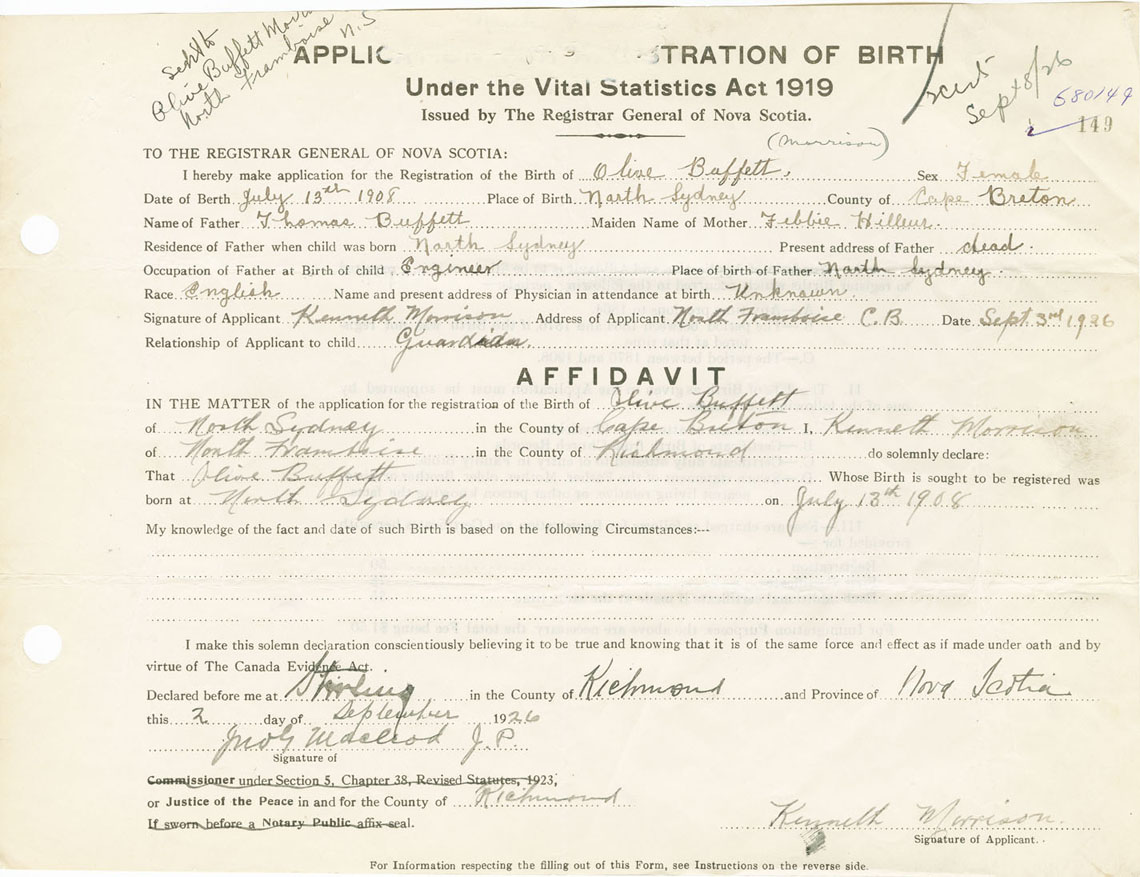 Sent to
Olive Buffett
North Framboise
N.S
APPLIC STRATION OF BIRTH
Under the Vital Statistics Act 1919
Issued by The Registrar General of Nova Scotia.
Sept 8/26
680149
149
(Morrison)
TO THE REGISTRAR GENERAL OF NOVA SCOTIA:
I hereby make application for the Registration of the Birth of Olive Buffett. Sex Female
Date of Berth July 13th 1908 Place of Birth North Sydney County of Cape Breton
Name of Father Thomas Buffett Maiden Name of Mother Febbie
Residence of Father when child was born North Sydney Present address of Father dead.
Occupation of Father at Birth of child Engineer Place of birth of Father North Sydney.
Race English Name and present address of Physician in attendance at birth Unknown.
Signature of Applicant Kenneth Morrison Address of Applicant North Framboise C.B. Date Sept 3rd 1926
Relationship of Applicant to child Guardian.
AFFIDAVIT
IN THE MATTER of the application for the registration of the Birth of Olive Buffett
of North Sydney in the County of Cape Breton I, Kenneth Morrison
of North Framboise in the County of Richmond do solemnly declare:
That Olive Buffett Whose Birth is sought to be registered was
born at North Sydney on July 13th 1908
My knowledge of the fact and date of such Birth is based on the following Circumstances:--
I make this solemn declaration conscientiously believing it to be true and knowing that it is of the same force and effect as if made under oath and by
virtue of The Canada Evidence Act.
Declared before me at Stirling in the County of Richmond and Province of Nova Scotia
this 2 day of September 1926
Jno G Macleod J.P.
Signature of
Commissioner under Section 5, Chapter 38, Revised Statutes, 1923,
or Justice of the Peace in and for the County of Richmond
If sworn before a Notary Public affix seal.
Kenneth Morrison.
Signature of Applicant.
For Information respecting the filling out of this Form, see Instructions on the reverse side.